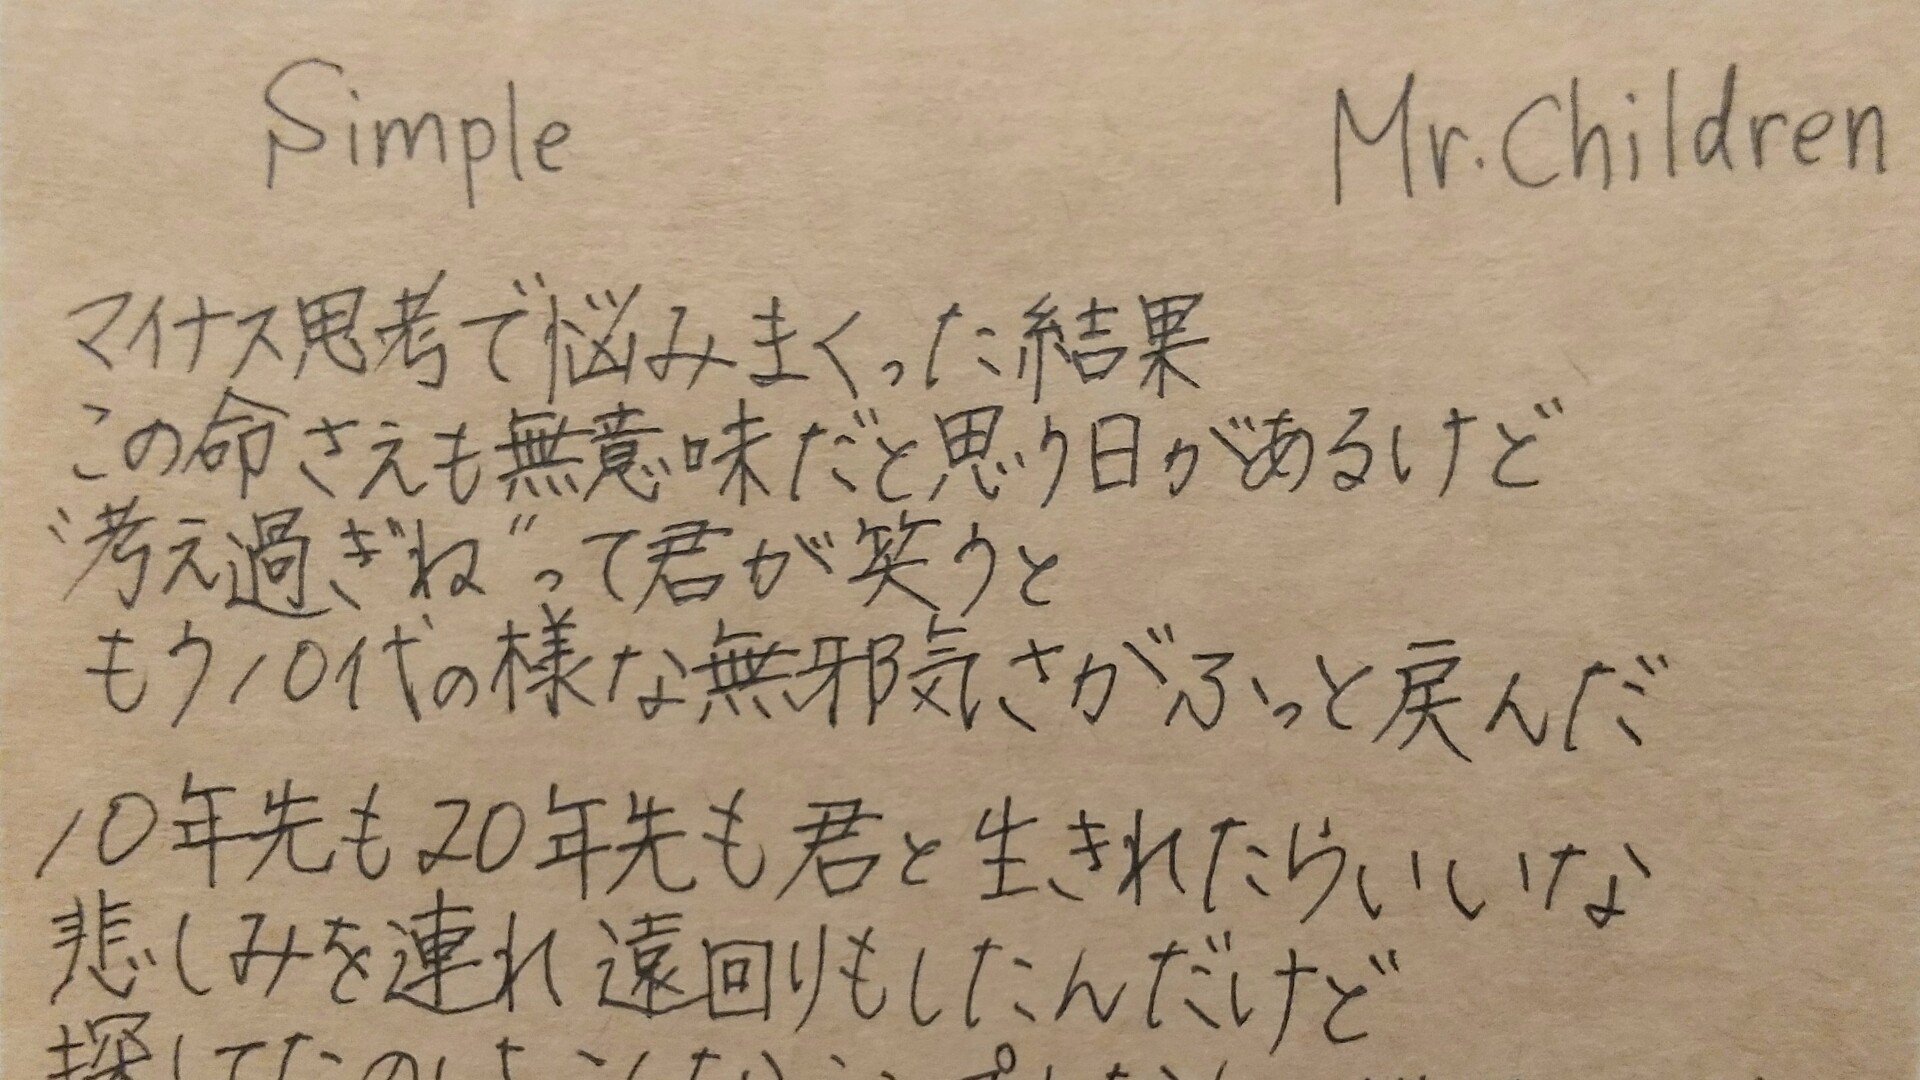 Simple Mr.Children
マイナス思考で悩みまくった結果
この命さえも無意味だと思う日があるけど
“考え過ぎね”って君が笑うと
もう10代の様な無邪気さがふっと戻んだ
10年先も20年先も君と生きれたらいいな
悲しみを連れ遠回りもしたんだけど
探してたのは